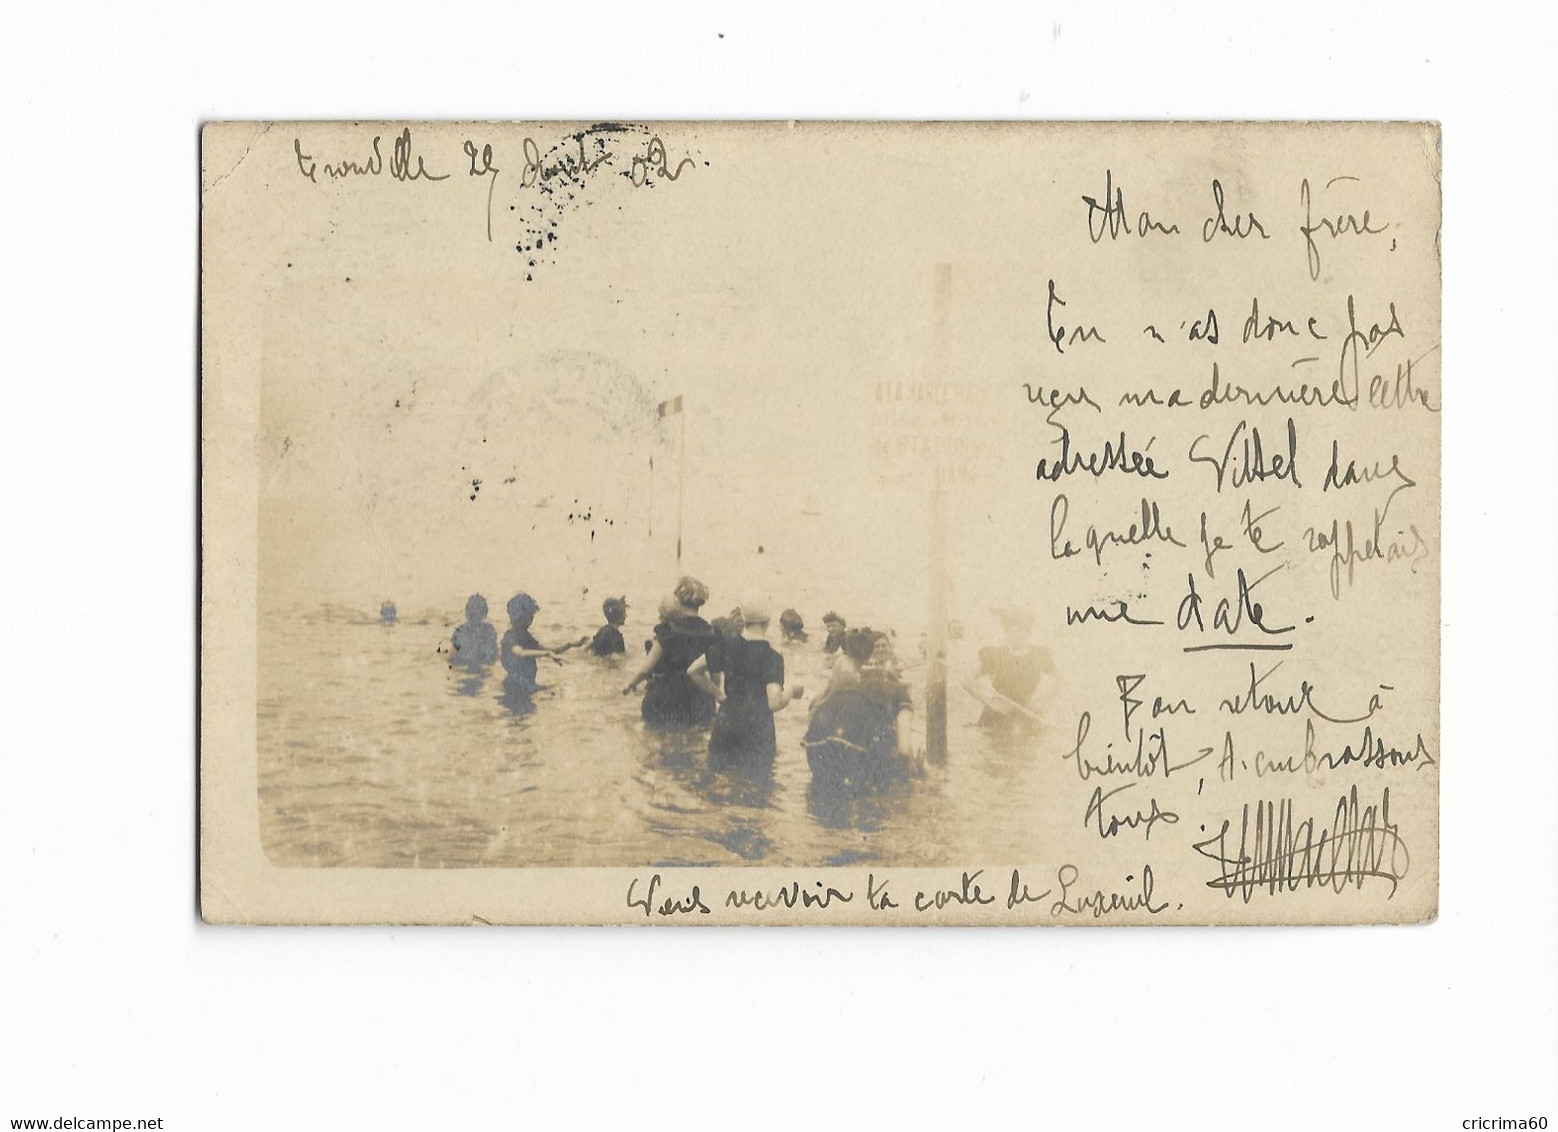 Trouville 29 Août 02.
Mon cher frère,
Tu n'as donc pas
reçu ma dernière lettre
adressée Vittel dans
laquelle je te rappelais
une date.
Bon retour à
bientôt, t'embrassons
tous
Viens recevoir ta carte de Luxeuil.
cricrima60